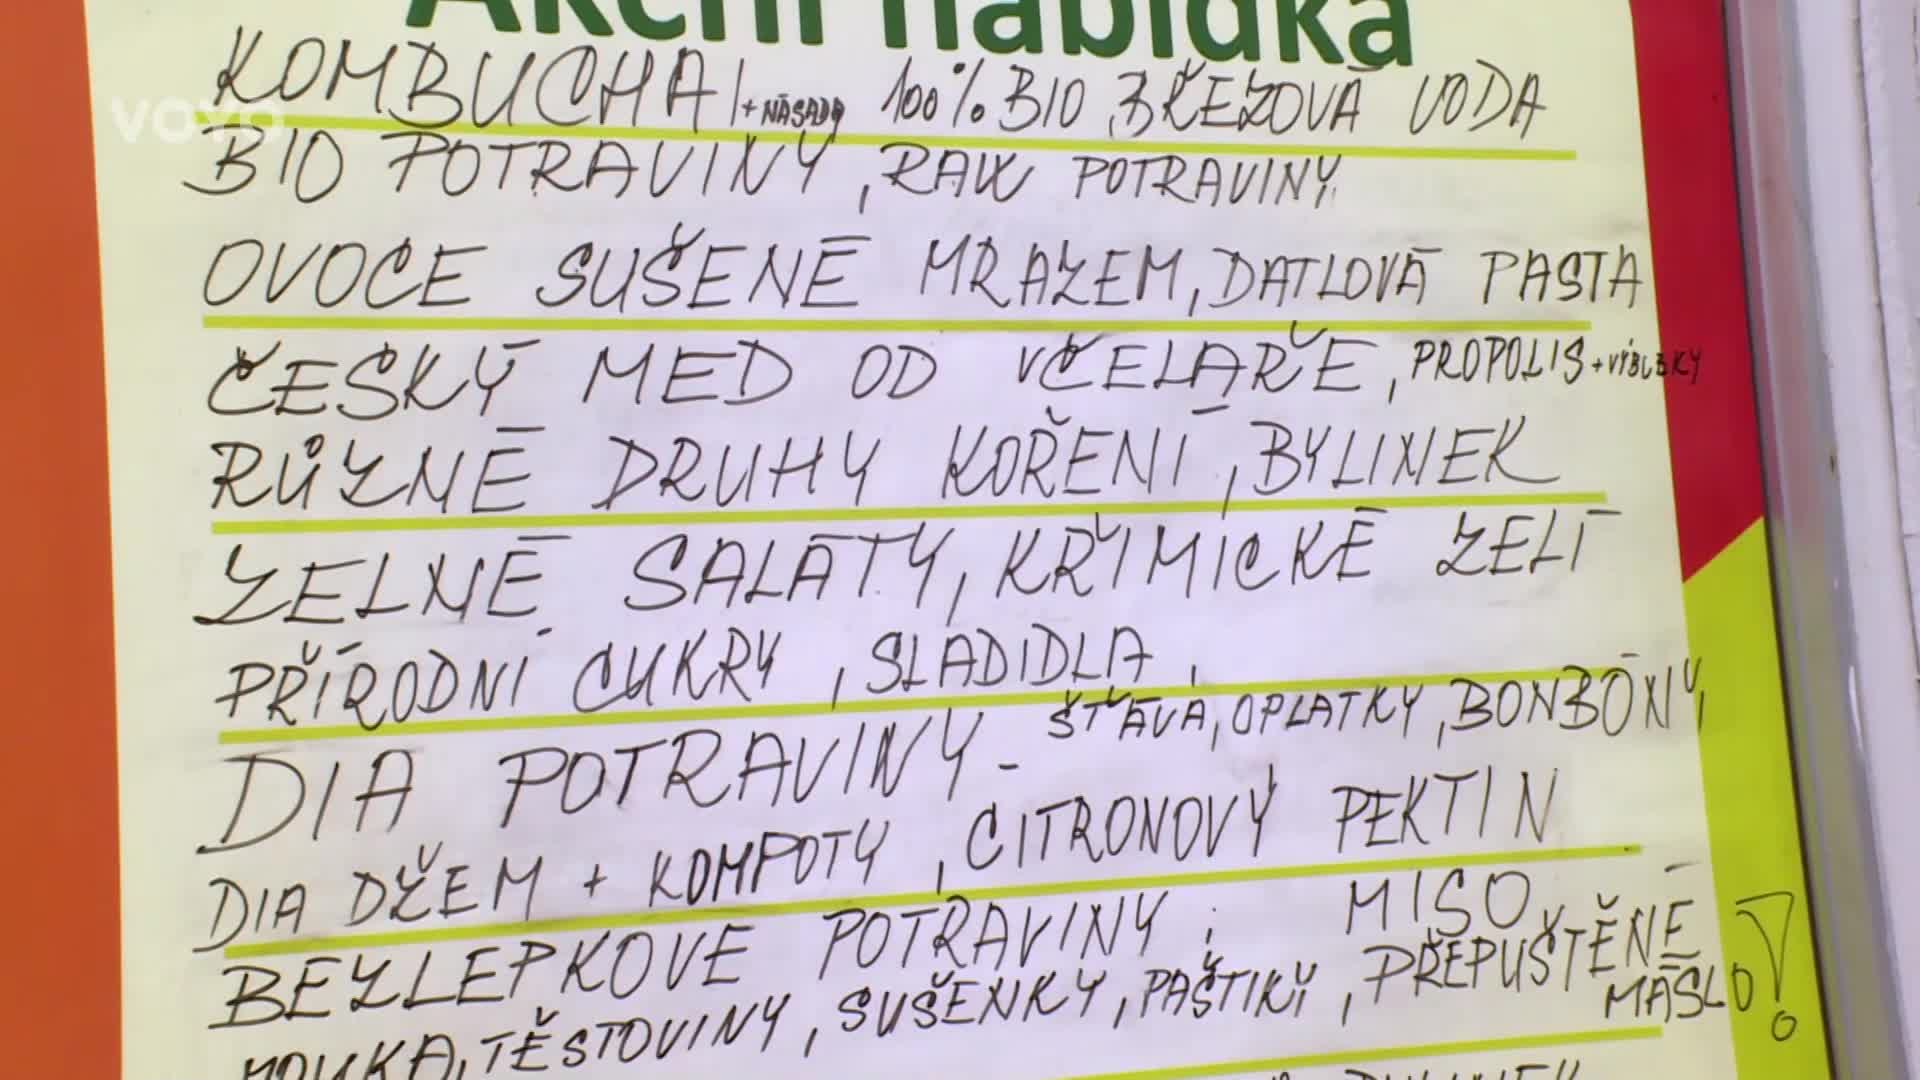 Akční nabídka
KOMBUCHA + NÁSADA, 100% BIO BŘEZOVÁ VODA
VOYO
BIO POTRAVINY, RAW POTRAVINY
OVOCE SUŠENÉ MRAZEM, DATLOVÁ PASTA
ČESKÝ MED OD VČELAŘE, PROPOLIS +
RŮZNÉ DRUHY KOŘENÍ, BYLINEK
ZELNÉ SALÁTY, KRÝMICKÉ ZELÍ
PŘÍRODNÍ CUKRY, SLADIDLA,
DIA POTRAVINY - ŠŤÁVA, OPLATKY, BONBÓNY,
DIA DŽEM + KOMPOTY, CITRONOVÝ PEKTIN
BEZLEPKOVÉ POTRAVINY: MISO
MOUKA, TĚSTOVINY, SUŠENKY, PAŠTIKY, PŘEPUŠTĚNÉ MÁSLO!